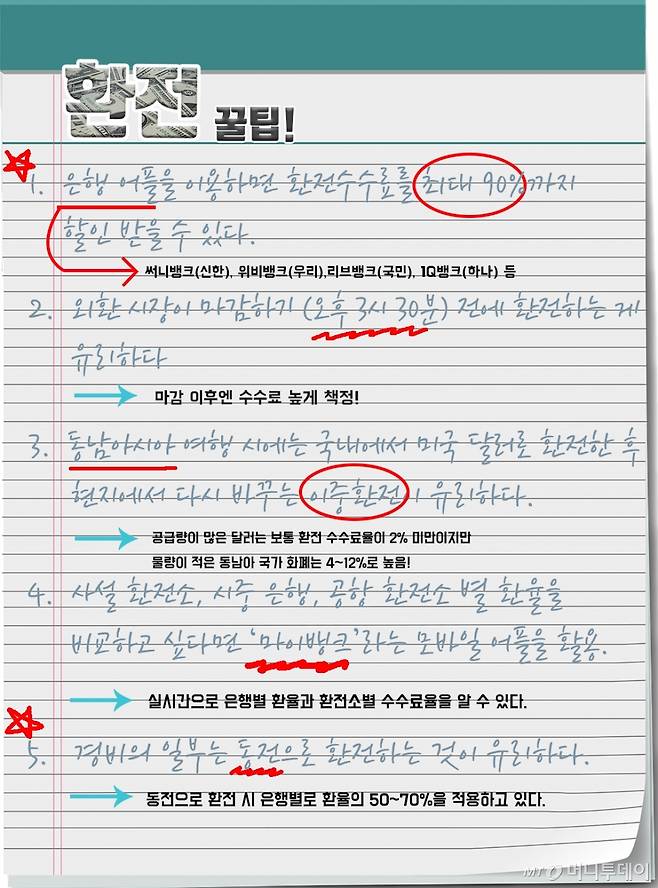 환전 꿀팁!
1. 은행 어플을 이용하면 환전수수료를 최대 90%까지
할인 받을 수 있다.
써니뱅크(신한), 위비뱅크(우리),리브뱅크(국민), 1Q뱅크(하나) 등
2. 외환 시장이 마감하기 (오후 3시 30분) 전에 환전하는 게
유리하다
마감 이후엔 수수료 높게 책정!
3. 동남아시아 여행 시에는 국내에서 미국 달러로 환전한 후
현지에서 다시 바꾸는 이중환전이 유리하다.
공급량이 많은 달러는 보통 환전 수수료율이 2% 미만이지만
물량이 적은 동남아 국가 화폐는 4~12%로 높음!
4. 사설 환전소, 시중 은행, 공항 환전소 별 환율을
비교하고 싶다면 '마이뱅크'라는 모바일 어플을 활용.
실시간으로 은행별 환율과 환전소별 수수료율을 알 수 있다.
5. 경비의 일부는 동전으로 환전하는 것이 유리하다.
동전으로 환전 시 은행별로 환율의 50~70%을 적용하고 있다.
머니투데이